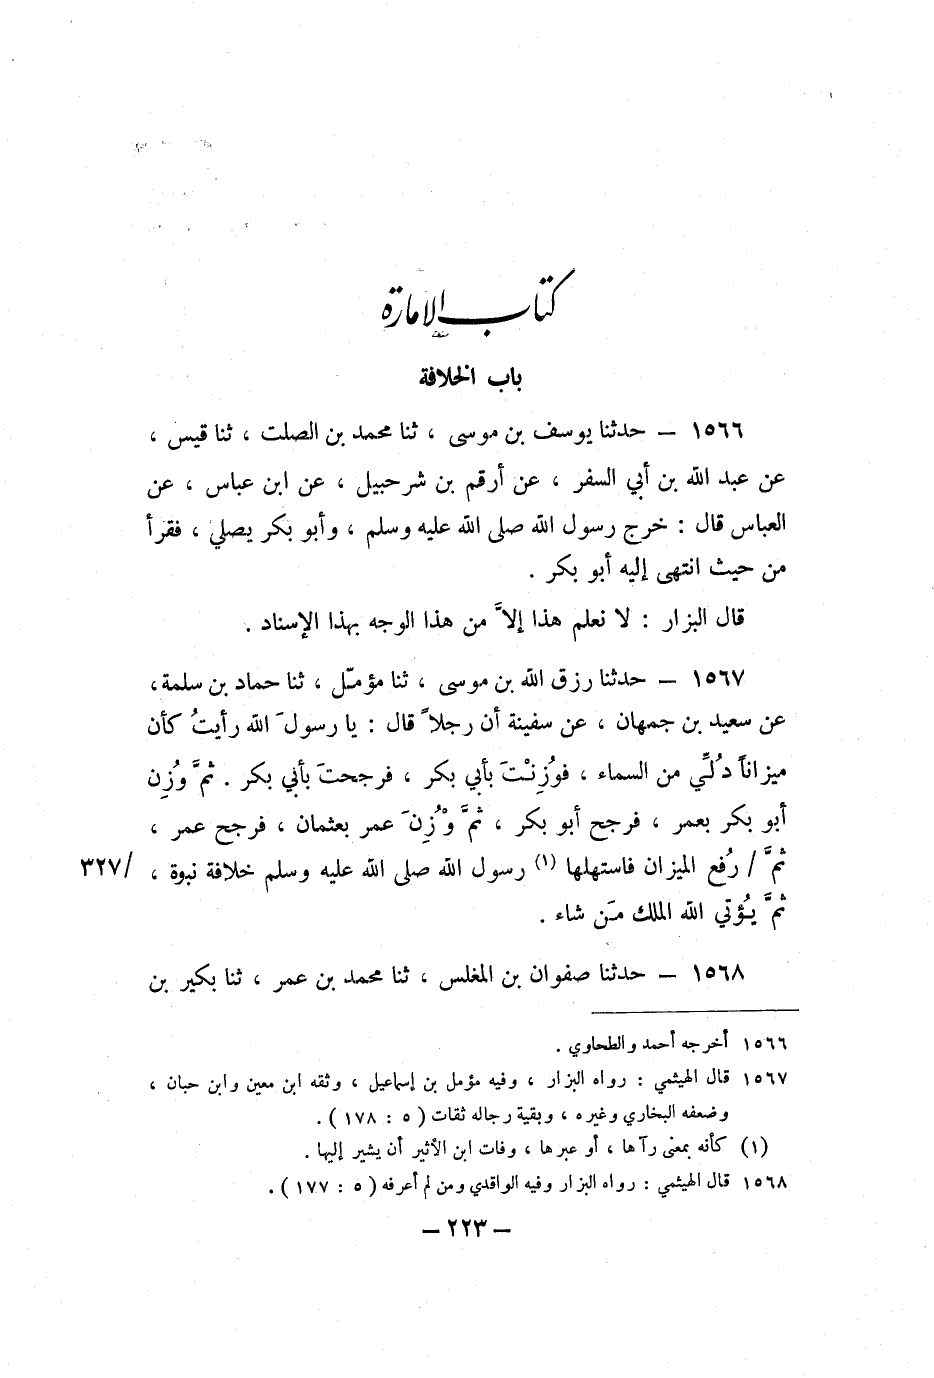 كتاب الامارة
باب الخلافة
١٥٦٦ – حدثنا يوسف بن موسى ، ثنا محمد بن الصلت ، ثنا قيس ،
عن عبد الله بن أبي السفر ، عن أرقم بن شرحبيل ، عن ابن عباس ، عن
العباس قال : خرج رسول الله صلى الله عليه وسلم ، وأبو بكر يصلي ، فقرأ
من حيث انتهى إليه أبو بكر .
قال البزار : لا نعلم هذا إلاَّ من هذا الوجه بهذا الإسناد .
١٥٦٧ – حدثنا رزق الله بن موسى ، ثنا مؤمّل ، ثنا حماد بن سلمة ،
عن سعيد بن جمهان ، عن سفينة أن رجلاً قال : يا رسولَ الله رأيتُ كأن
ميزاناً دُلِّي من السماء ، فوُزِنْتَ بأبي بكر ، فرجحتَ بأبي بكر . ثمَّ وُزِن
أبو بكر بعمر ، فرجح أبو بكر ، ثمَّ وُزِنَ عمر بعثمان ، فرجح عمر ،
ثمَّ / رُفع الميزان فاستهلها (١) رسول الله صلى الله عليه وسلم خلافة نبوة ، /٣٢٧
ثمَّ يُؤتي الله الملك مَن شاء .
١٥٦٨ – حدثنا صفوان بن المغلس ، ثنا محمد بن عمر ، ثنا بكير بن
١٥٦٦ أخرجه أحمد والطحاوي .
١٥٦٧ قال الهيثمي : رواه البزار ، وفيه مؤمل بن إسماعيل ، وثقه ابن معين وابن حبان ،
وضعفه البخاري وغيره ، وبقية رجاله ثقات ( ٥ : ١٧٨ ) .
(١) كأنه بمعنى رآها ، أو عبرها ، وفات ابن الأثير أن يشير إليها .
١٥٦٨ قال الهيثمي : رواه البزار وفيه الواقدي ومن لم أعرفه ( ٥ : ١٧٧ ) .
– ٢٢٣ –